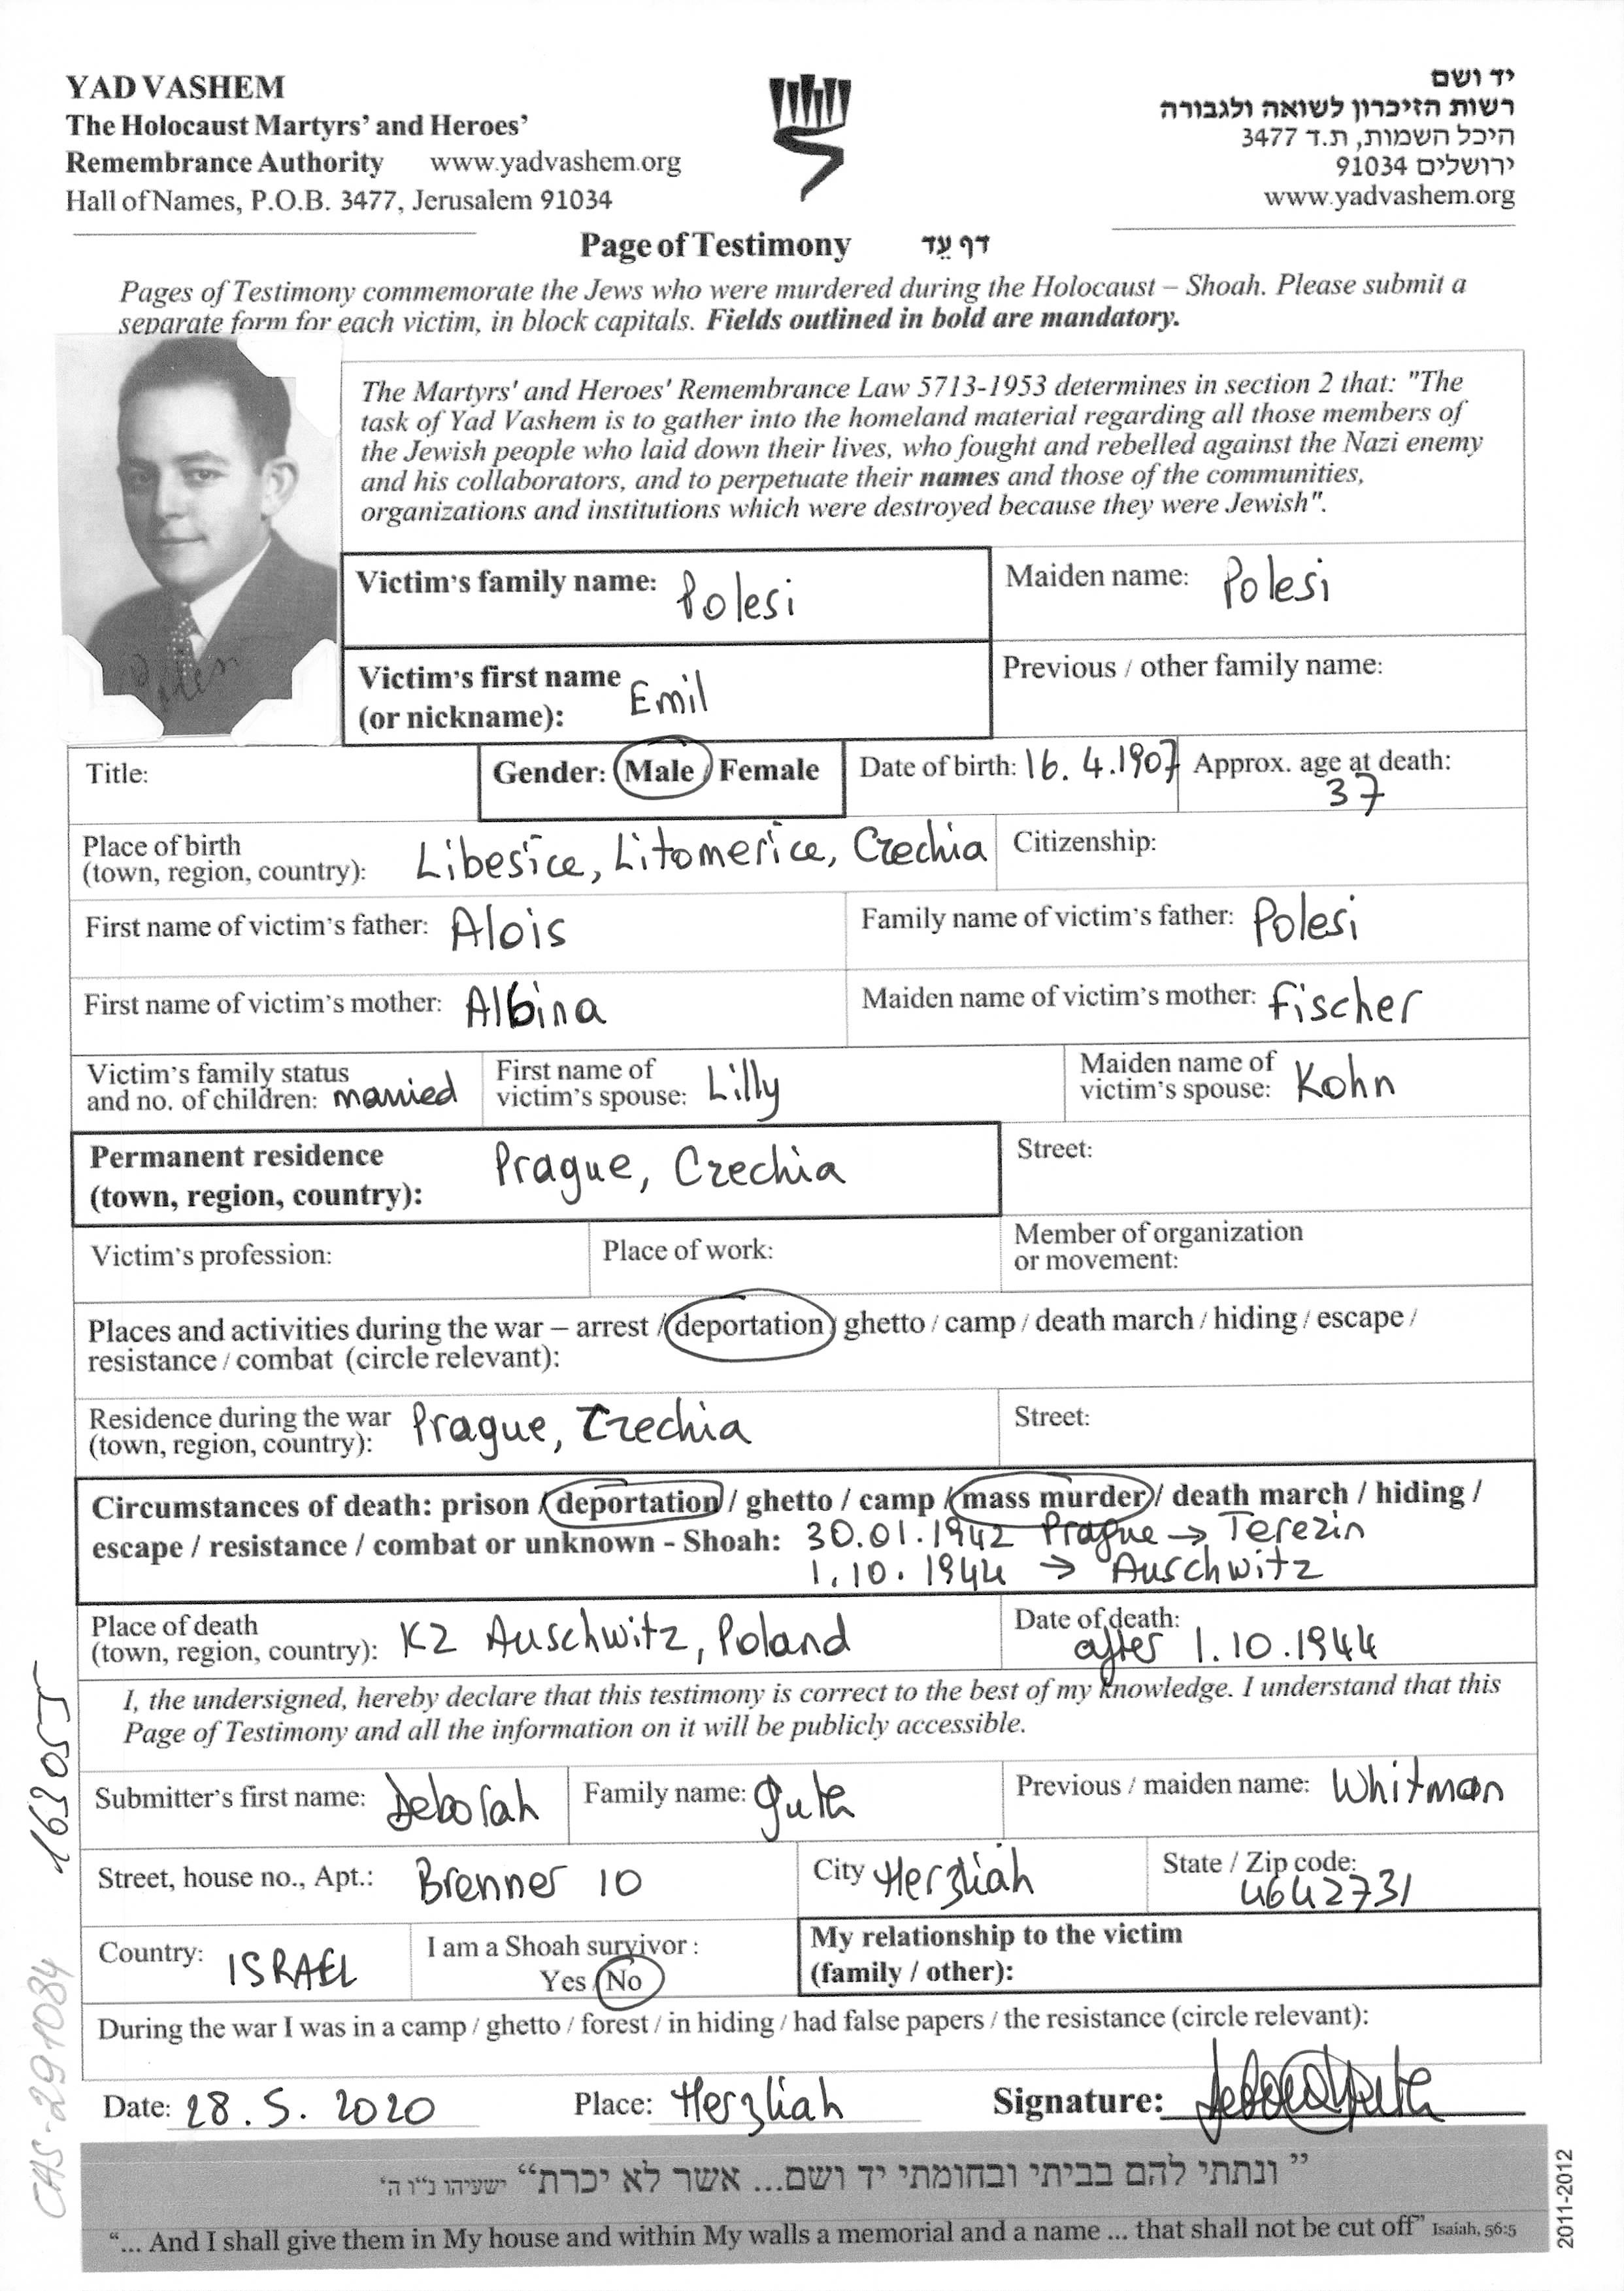 YAD VASHEM
The Holocaust Martyrs' and Heroes'
Remembrance Authority www.yadvashem.org
Hall of Names, P.O.B. 3477, Jerusalem 91034
יד ושם
רשות הזיכרון לשואה ולגבורה
היכל השמות, ת.ד 3477
ירושלים 91034
www.yadvashem.org
Page of Testimony דף עֵד
Pages of Testimony commemorate the Jews who were murdered during the Holocaust – Shoah. Please submit a
separate form for each victim, in block capitals. Fields outlined in bold are mandatory.
The Martyrs' and Heroes' Remembrance Law 5713-1953 determines in section 2 that: "The
task of Yad Vashem is to gather into the homeland material regarding all those members of
the Jewish people who laid down their lives, who fought and rebelled against the Nazi enemy
and his collaborators, and to perpetuate their names and those of the communities,
organizations and institutions which were destroyed because they were Jewish".
Victim's family name: Polesi Maiden name: Polesi
Victim's first name
(or nickname): Emil Previous / other family name:
Title: Gender: Male / Female Date of birth: 16. 4.1907 Approx. age at death:
37
Place of birth
(town, region, country): Libesice, Litomerice, Czechia Citizenship:
First name of victim's father: Alois Family name of victim's father: Polesi
First name of victim's mother: Albina Maiden name of victim's mother: Fischer
Victim's family status
and no. of children: married First name of
victim's spouse: Lilly Maiden name of
victim's spouse: Kohn
Permanent residence
(town, region, country): Prague, Czechia Street:
Victim's profession: Place of work: Member of organization
or movement:
Places and activities during the war – arrest / deportation / ghetto / camp / death march / hiding / escape /
resistance / combat (circle relevant):
Residence during the war
(town, region, country): Prague, Czechia Street:
Circumstances of death: prison / deportation / ghetto / camp / mass murder / death march / hiding /
escape / resistance / combat or unknown - Shoah: 30.01.1942 Prague → Terezin
1.10.1944 → Auschwitz
Place of death
(town, region, country): KZ Auschwitz, Poland Date of death:
after 1.10.1944
I, the undersigned, hereby declare that this testimony is correct to the best of my knowledge. I understand that this
Page of Testimony and all the information on it will be publicly accessible.
Submitter's first name: Deborah Family name: Guth Previous / maiden name: Whitman
Street, house no., Apt.: Brenner 10 City Herzliah State / Zip code:
4642731
Country: ISRAEL I am a Shoah survivor :
Yes / No My relationship to the victim
(family / other):
During the war I was in a camp / ghetto / forest / in hiding / had false papers / the resistance (circle relevant):
Date: 28.5. 2020 Place: Herzliah Signature: Deborah Guth
” ונתתי להם בביתי ובחומתי יד ושם... אשר לא יכרת“ ישעיהו נ״ו ה'
“... And I shall give them in My house and within My walls a memorial and a name ... that shall not be cut off” Isaiah, 56:5
2011-2012
163055
CAS-291084